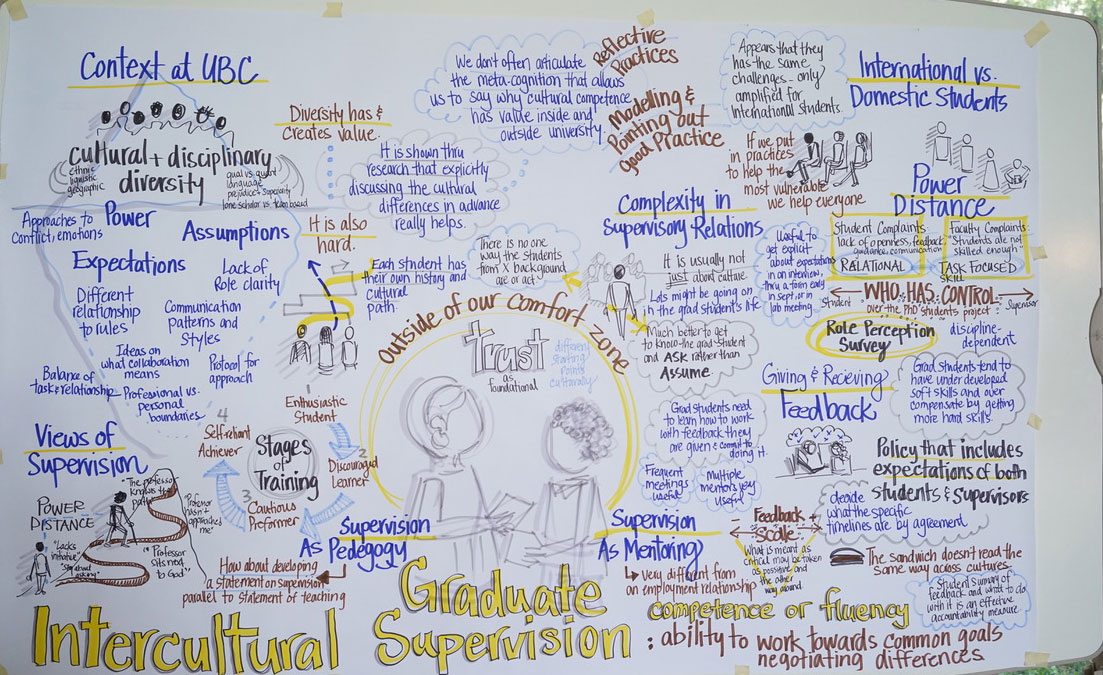 Context at UBC
cultural + disciplinary
diversity
ethnic
linguistic
geographic
qual vs. quant
language
prejudice & superiority
lone scholar vs. team based
Diversity has &
creates value.
We don't often articulate
the meta-cognition that allows
us to say why cultural competence
has value inside and
outside university.
Reflective
Practices
Modelling &
Pointing out
good Practice
Appears that they
has the same
challenges - only
amplified for
International students.
International vs.
Domestic Students
If we put
in practices
to help the
most vulnerable
we help everyone
It is shown thru
research that explicitly
discussing the cultural
differences in advance
really helps.
It is also
hard.
Approaches to
Conflict, emotions
Power
Assumptions
Expectations
Lack of
Role clarity
Different
relationship
to rules
Communication
patterns and
Styles
Ideas on
what collaboration
means
Protocol for
approach
Balance of
task & relationship
Professional vs.
personal
boundaries
Each student has
their own history and
cultural
path
There is no one
way the students
from X background
are or act
Complexity in
Supervisory Relations
It is usually not
just about culture
Lots might be going on
in the grad student's life
Much better to get
to know the grad student
and ASK rather than
Assume
Useful to
get explicit
about expectations
in an interview,
thru a form early
in sept. or in
lab meeting.
Power
Distance
Student Complaints
lack of openness, feedback
guidance, communication
RELATIONAL
Faculty Complaints
Students are not
skilled enough
TASK FOCUSED
SKILL
WHO HAS CONTROL
Student
over the PhD student's project
Supervisor
Role Perception
Survey
discipline-
dependent
Outside of our comfort zone
trust
as
foundational
different
starting
points
culturally
Giving & Recieving
Feedback
Grad students tend to
have under developed
soft skills and over
compensate by getting
more hard skills.
Grad students need
to learn how to work
with feedback they
are given & commit to
doing it.
Frequent
meetings
useful
Multiple
mentors very
useful
Policy that includes
expectations of both
students & supervisors
decide
what the specific
timelines are by agreement
Views of
Supervision
POWER
DISTANCE
"The professor
knows the
path"
"Lacks
initiative"
Professor
hasn't
approached
me"
"Professor
sits next
to God"
Stages
of
Training
1
Enthusiastic
Student
2
Discouraged
Learner
3
Cautious
Preformer
4
Self-reliant
Achiever
Supervision
As Pedegogy
How about developing
a statement on supervision
parallel to statement of teaching
Supervision
As Mentoring
very different from
an employment relationship
Feedback
Scale
- +
What is meant as
critical may be taken
as positive and
the other
way around
The sandwich doesn't read the
same way across cultures.
Student summary of
feedback and what to do
with it is an effective
accountability measure.
Intercultural
Graduate
Supervision
competence or fluency
: ability to work towards common goals
negotiating differences